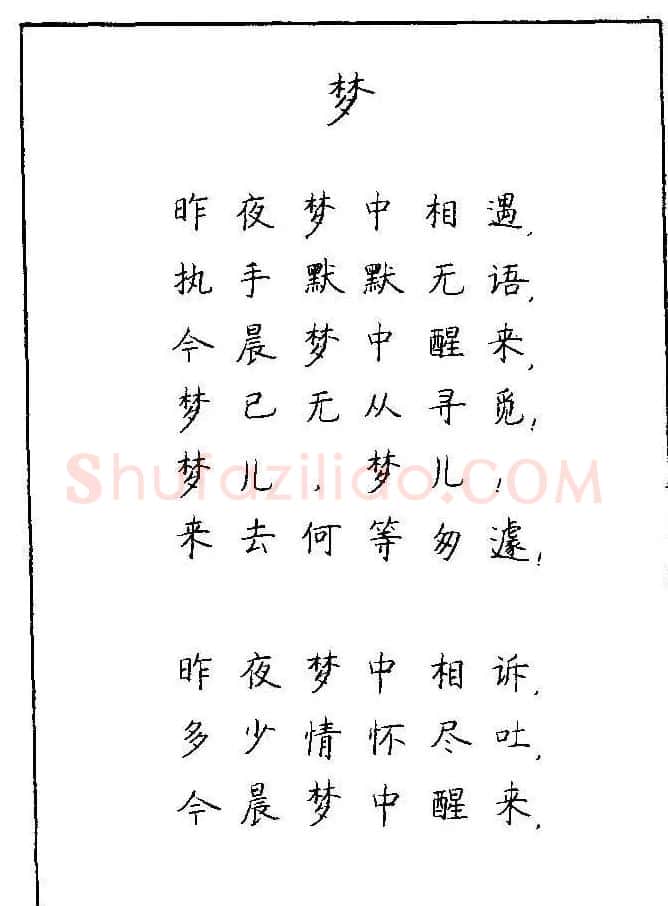 梦
昨夜梦中相遇,
执手默默无语,
今晨梦中醒来,
梦已无从寻觅!
梦儿,梦儿!
Shufaziliao.COM
来去何等匆遽!
昨夜梦中相诉,
多少情怀尽吐,
今晨梦中醒来,